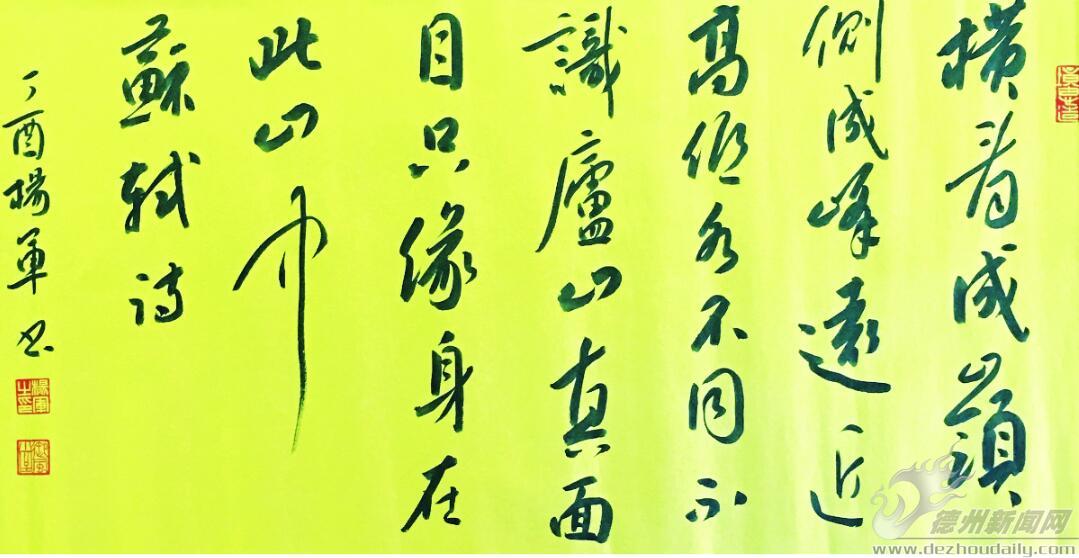 橫看成嶺
側成峰遠近
高低各不同不
識廬山真面
目只緣身在
此山中
蘇軾詩
丁酉楊軍书
楊軍之印
德州新闻网
www.dezhoudaily.com